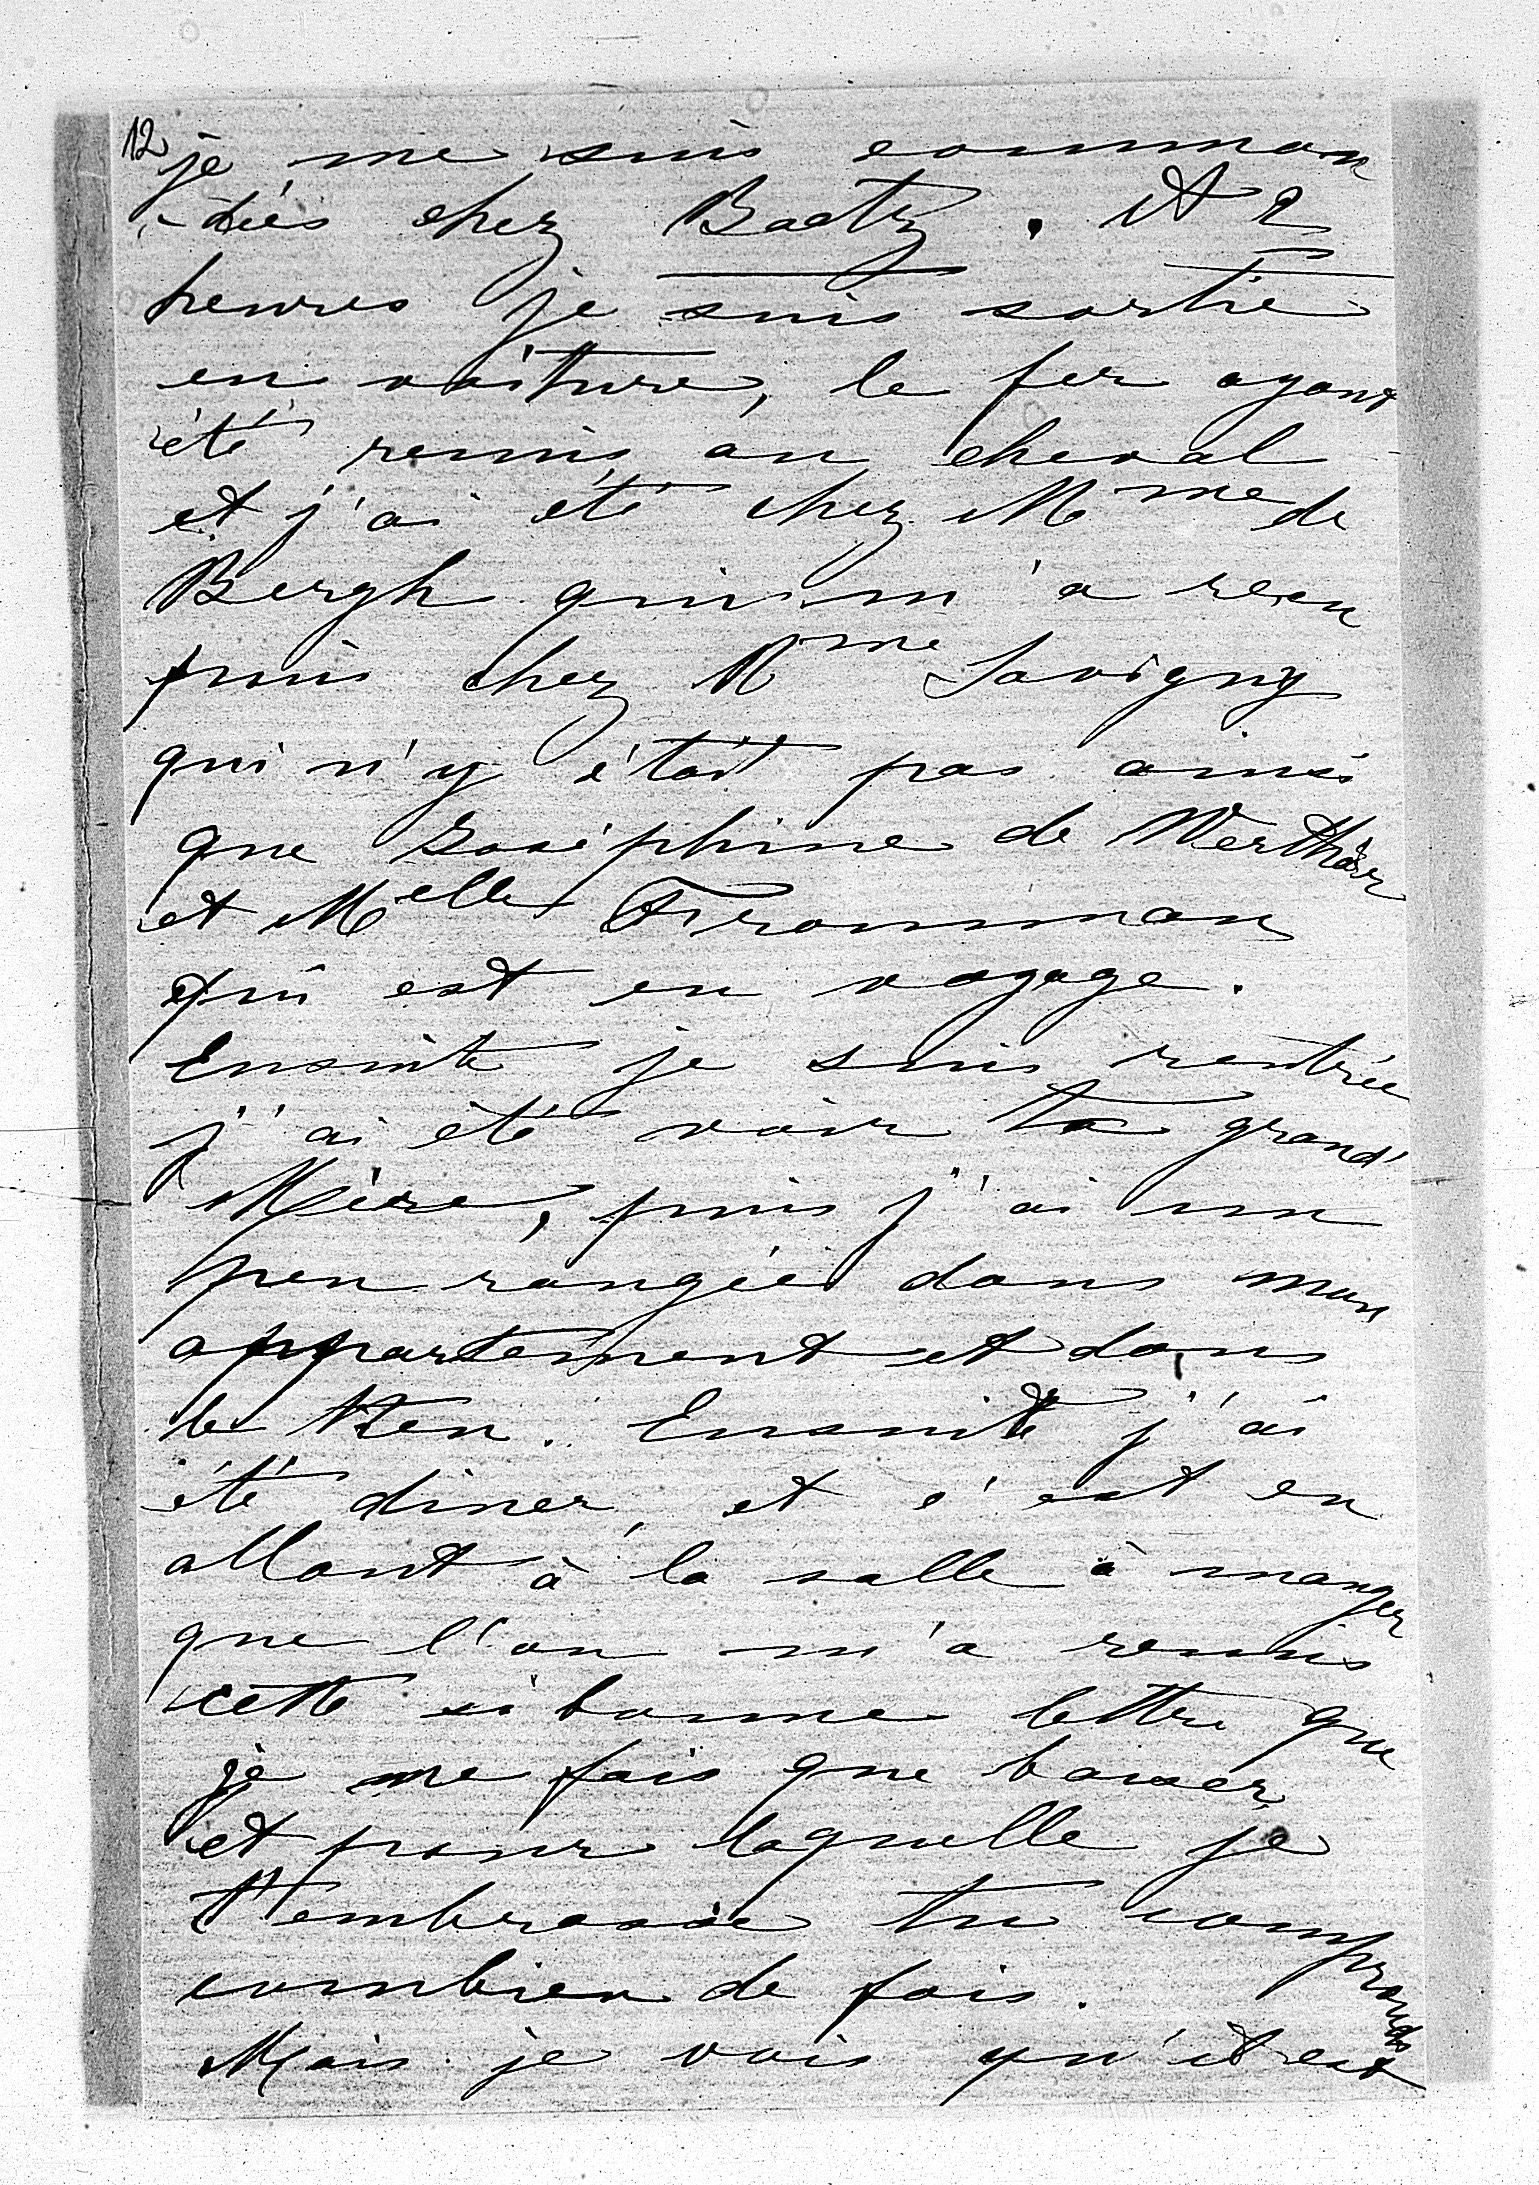 12
je me suis comman
-dées chez Baetz. A 2
heures je suis sortie
en voiture, le fer ayant
été remis au cheval
et j'ai été chez Mme de
Bergh qui m'a recu
puis chez Mme Savigny
qui n'y était pas ainsi
que Joséphine de Werther
et Melle Fromman
qui est en voyage.
Ensuite je suis rentrée
j'ai été voir ta grand'
Mère, puis j'ai un
peu rangée dans mon
appartement et dans
le tien. Ensuite j'ai
été diner, et c'est en
allant à la salle à manger
que l'on m'a remis
cette si bonne lettre que
je ne fais que baiser
et pour laquelle je
t'embrasse tu comprends
combien de fois.
Mais je vois qu'il est